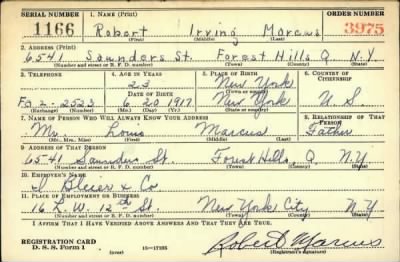 SERIAL NUMBER 1. NAME (Print) ORDER NUMBER
1166 Robert Irving Marcus 3975
(First) (Middle) (Last)
2. ADDRESS (Print)
6541 Saunders St. Forest Hills Q N.Y.
(Number and street or R. F. D. number) (Town) (County) (State)
3. TELEPHONE 4. AGE IN YEARS 5. PLACE OF BIRTH 6. COUNTRY OF CITIZENSHIP
23 New York
DATE OF BIRTH (Town or county)
2-2523 6 20 1917 New York U. S.
(Exchange) (Number) (Mo.) (Day) (Yr.) (State or country)
7. NAME OF PERSON WHO WILL ALWAYS KNOW YOUR ADDRESS 8. RELATIONSHIP OF THAT PERSON
Mr. Louis Marcus Father
(Mr., Mrs., Miss) (First) (Middle) (Last)
9. ADDRESS OF THAT PERSON
6541 Saunders St. Forest Hills, Q N.Y.
(Number and street or R. F. D. number) (Town) (County) (State)
10. EMPLOYER'S NAME
Bleier & Co
11. PLACE OF EMPLOYMENT OR BUSINESS
16 W. 12th St. New York City N.Y.
(Number and street or R. F. D. number) (Town) (County) (State)
I AFFIRM THAT I HAVE VERIFIED ABOVE ANSWERS AND THAT THEY ARE TRUE.
REGISTRATION CARD
D. S. S. Form 1 (over) Robert Marcus
(Registrant's signature)